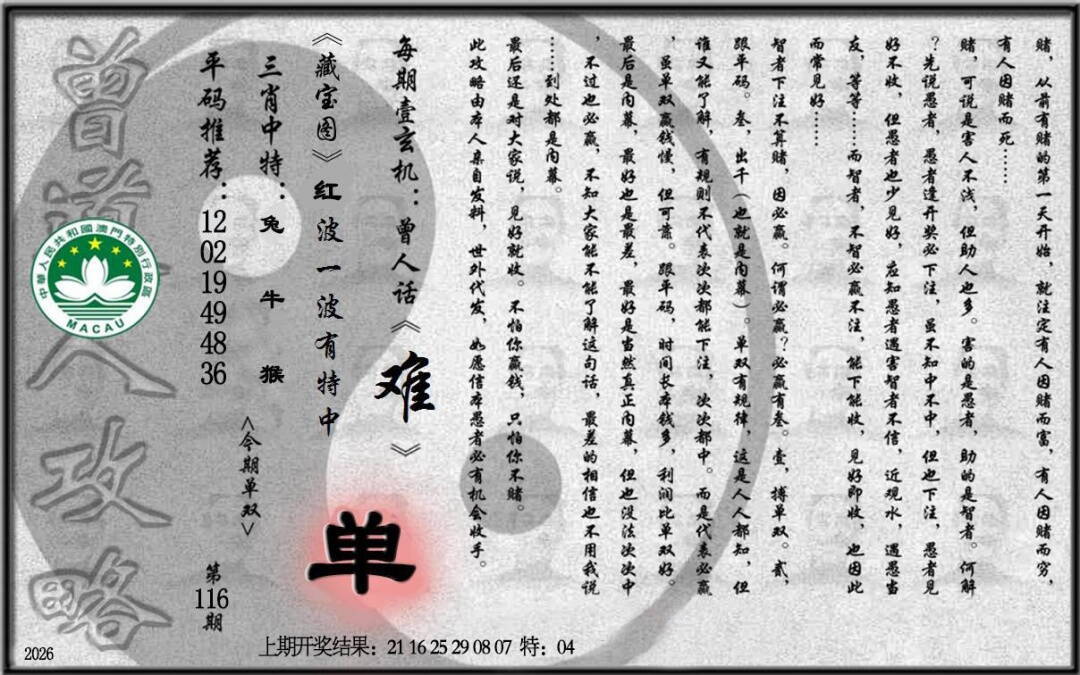 赌，从前有赌的第一天开始，就注定有人因赌而富，有人因赌而穷，
有人因赌而死……
赌，可说是害人不浅，但助人也多。害的是愚者，助的是智者。何解
？先说愚者，愚者逢开奖必下注，虽不知中不中，但也下注，愚者见
好不收，但愚者也少见好，应知愚者遇害智者不信，近观水，遇愚当
友，等等……而智者，不智必赢不注，能下能收，见好即收，也因此
而常见好……
智者下注不算赌，因必赢。何谓必赢？必赢有叁。壹，搏单双。贰，
跟单码。叁，出千（也就是内幕）。单双有规律，这是人人都知，但
谁又能了解，有规则不代表次次都能下注，次次都中。而是代表必赢
，虽单双赢钱慢，但可靠。跟单码，时间长本钱多，利润比单双好。
最后是内幕，最好也是最差，最好是当然真正内幕，但也没法次次中
，不过也必赢，不知大家能不能了解这句话，最差的相信也不用我说
……到处都是内幕。
最后还是对大家说，见好就收。不怕你赢钱，只怕你不赌。
此攻略由本人亲自发料，世外代发，如愿信本愚者必有机会收手。
每期壹玄机：曾人话《难》
《藏宝图》红波一波有特中
单
三肖中特：兔 牛 猴
<今期单双>
平码推荐：12 02 19 49 48 36
第116期
曾道人攻略
中華人民共和國澳門特別行政區
MACAU
2026
上期开奖结果：21 16 25 29 08 07 特：04